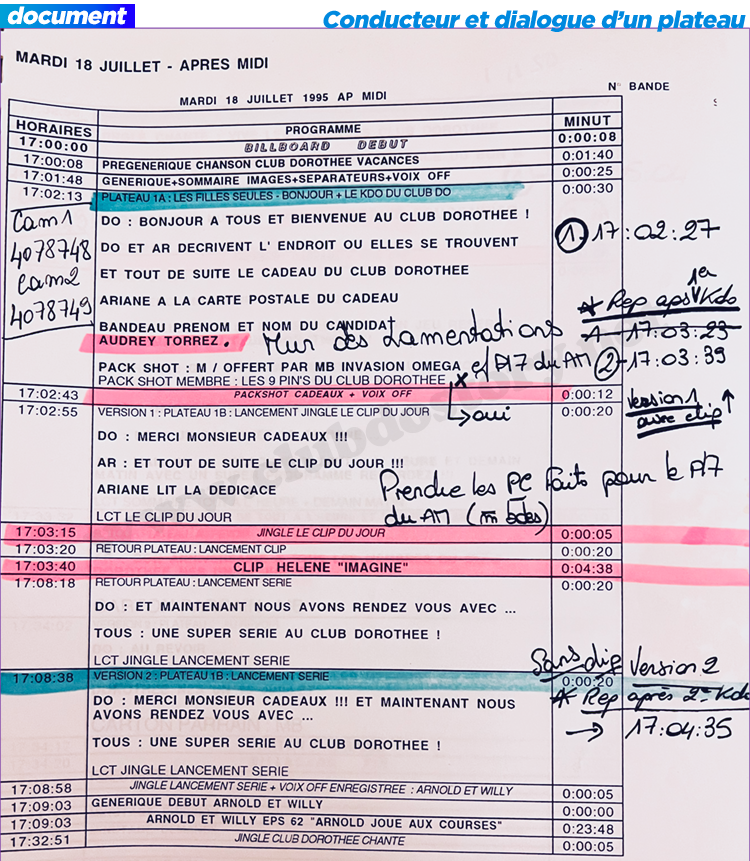 document
Conducteur et dialogue d'un plateau
MARDI 18 JUILLET - APRES MIDI
N° BANDE
MARDI 18 JUILLET 1995 AP MIDI
HORAIRES PROGRAMME MINUT
17:00:00 BILLBOARD DEBUT 0:00:08
17:00:08 PREGENERIQUE CHANSON CLUB DOROTHEE VACANCES 0:01:40
17:01:48 GENERIQUE+SOMMAIRE IMAGES+SEPARATEURS+VOIX OFF 0:00:25
17:02:13 PLATEAU 1A : LES FILLES SEULES - BONJOUR + LE KDO DU CLUB DO 0:00:30
Cam1
4078748
Cam2
4078749
DO : BONJOUR A TOUS ET BIENVENUE AU CLUB DOROTHEE !
1-17:02:27
DO ET AR DECRIVENT L' ENDROIT OU ELLES SE TROUVENT
ET TOUT DE SUITE LE CADEAU DU CLUB DOROTHEE
1er
* Rep aps Kdo
ARIANE A LA CARTE POSTALE DU CADEAU
1-17:03:23
BANDEAU PRENOM ET NOM DU CANDIDAT
AUDREY TORREZ.
Mur des Lamentations
2-17:03:39
PACK SHOT : M / OFFERT PAR MB INVASION OMEGA
PACK SHOT MEMBRE : LES 9 PIN'S DU CLUB DOROTHEE
cf A17 du AM
17:02:43 PACKSHOT CADEAUX + VOIX OFF 0:00:12
Version 1
avec clip
17:02:55 VERSION 1 : PLATEAU 1B : LANCEMENT JINGLE LE CLIP DU JOUR 0:00:20
oui
DO : MERCI MONSIEUR CADEAUX !!!
AR : ET TOUT DE SUITE LE CLIP DU JOUR !!!
ARIANE LIT LA DEDICACE
Prendre les PC faits pour le A17
du AM (m bdes)
LCT LE CLIP DU JOUR
17:03:15 JINGLE LE CLIP DU JOUR 0:00:05
17:03:20 RETOUR PLATEAU : LANCEMENT CLIP 0:00:20
17:03:40 CLIP HELENE "IMAGINE" 0:04:38
17:08:18 RETOUR PLATEAU : LANCEMENT SERIE 0:00:20
DO : ET MAINTENANT NOUS AVONS RENDEZ VOUS AVEC ...
TOUS : UNE SUPER SERIE AU CLUB DOROTHEE !
LCT JINGLE LANCEMENT SERIE
Sans clip Version 2
17:08:38 VERSION 2 : PLATEAU 1B : LANCEMENT SERIE 0:00:20
* Rep après 2e Kdo
DO : MERCI MONSIEUR CADEAUX !!! ET MAINTENANT NOUS
AVONS RENDEZ VOUS AVEC ...
→ 17:04:35
TOUS : UNE SUPER SERIE AU CLUB DOROTHEE !
LCT JINGLE LANCEMENT SERIE
17:08:58 JINGLE LANCEMENT SERIE + VOIX OFF ENREGISTREE : ARNOLD ET WILLY 0:00:05
17:09:03 GENERIQUE DEBUT ARNOLD ET WILLY 0:00:00
17:09:03 ARNOLD ET WILLY EPS 62 "ARNOLD JOUE AUX COURSES" 0:23:48
17:32:51 JINGLE CLUB DOROTHEE CHANTE 0:00:05